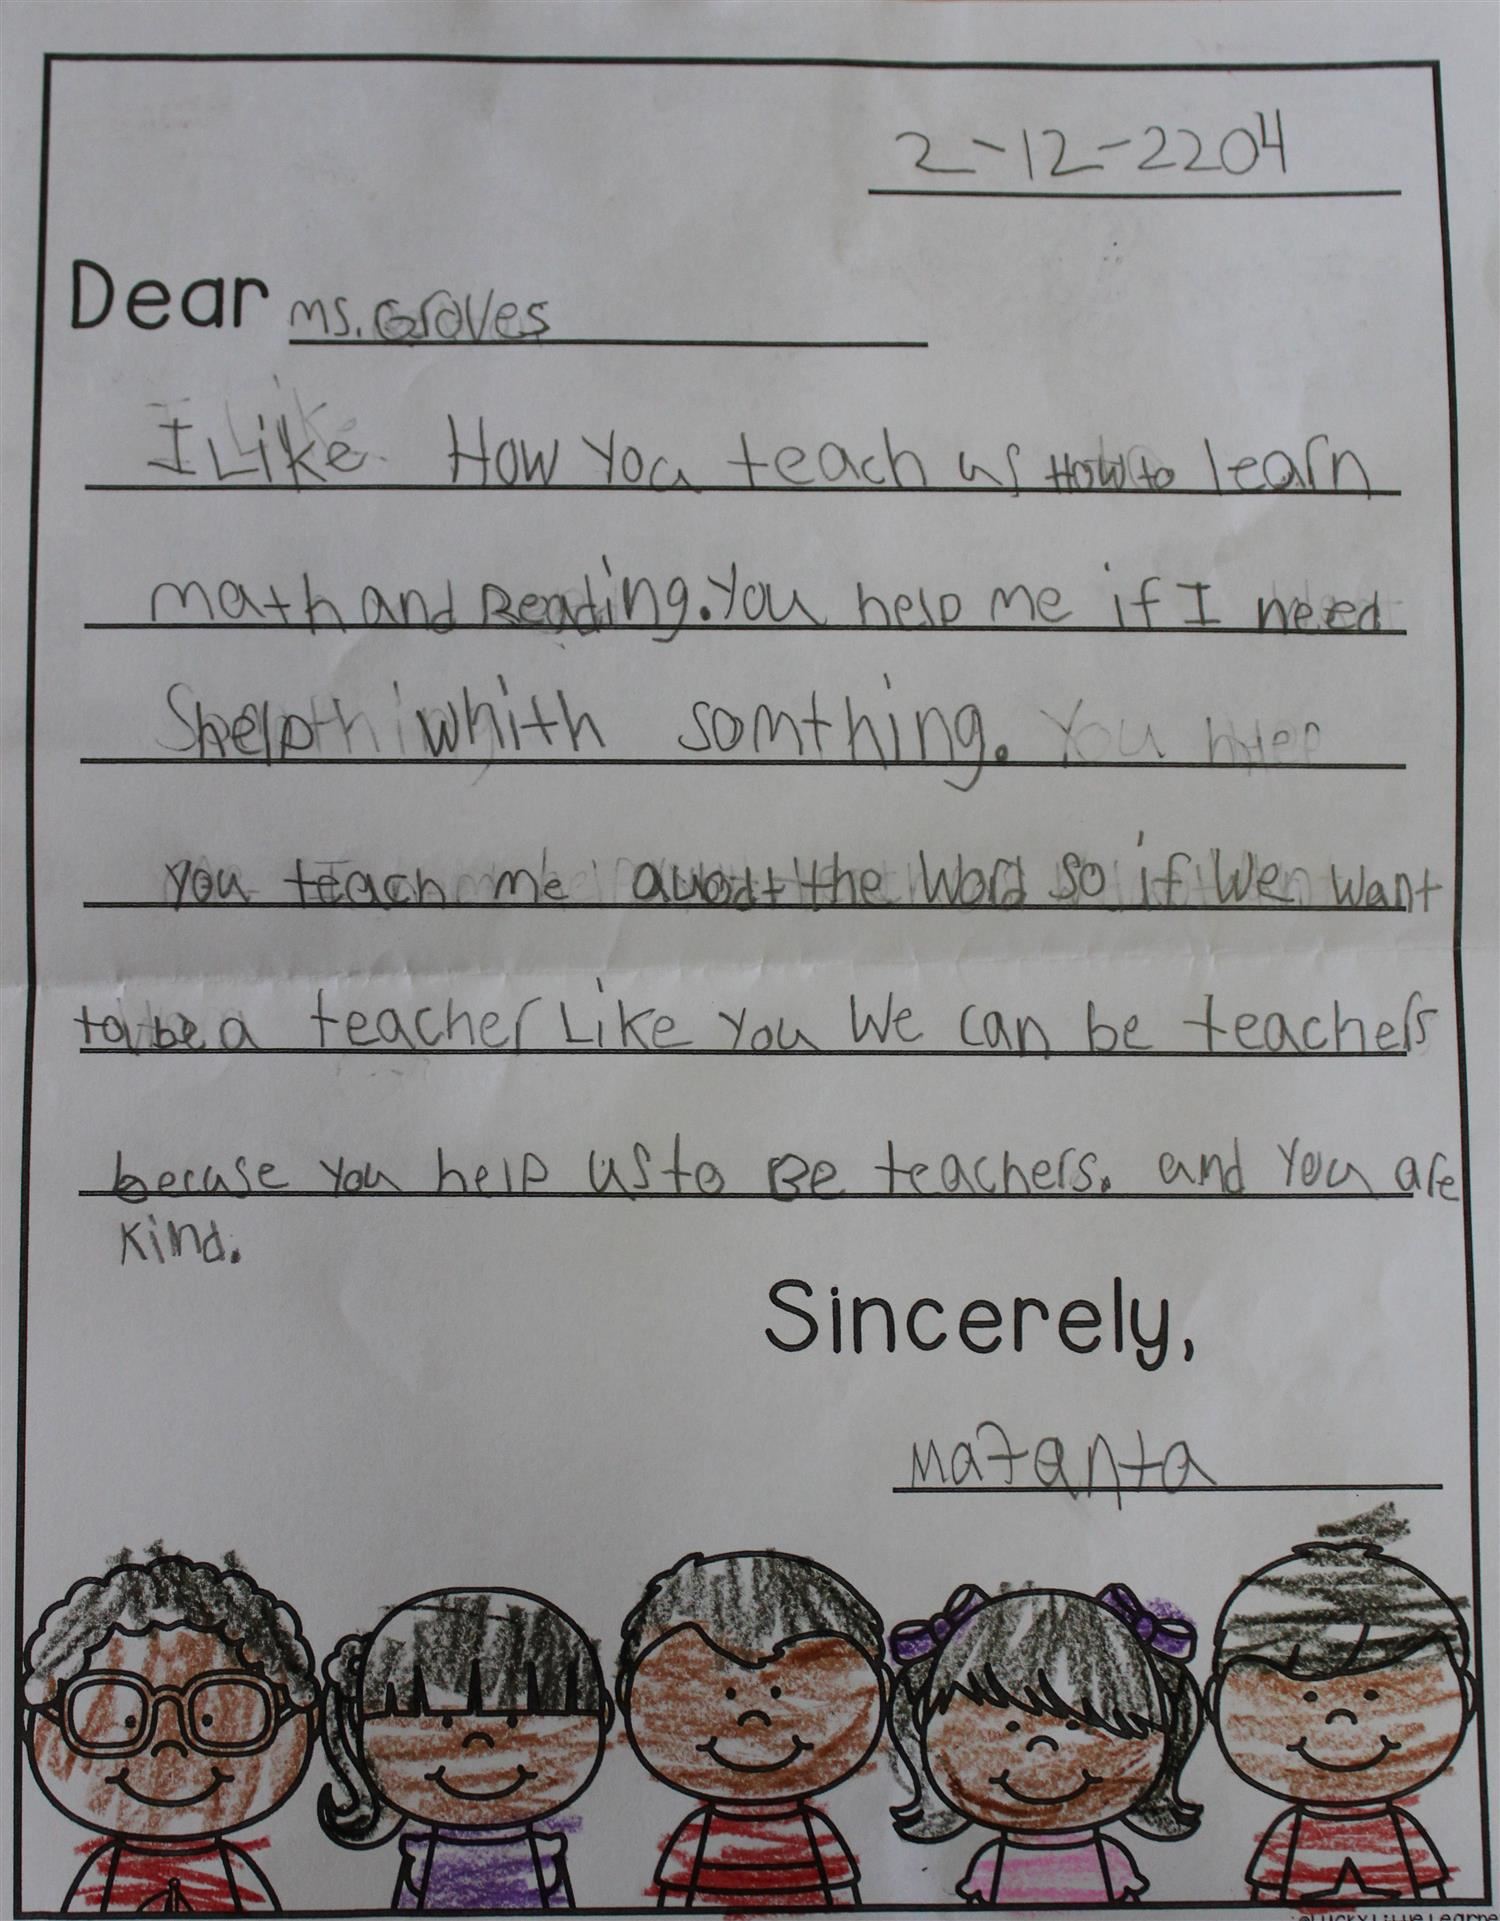 2-12-2204
Dear Ms. Groves
I Like How You teach us How to learn
math and Reading. You help me if I need
help whith somthing.
you teach me auodt the Word so if We want
to be a teacher Like you We can be teachers
becuse you help us to Be teachers. and You are
kind.
Sincerely,
Majanta